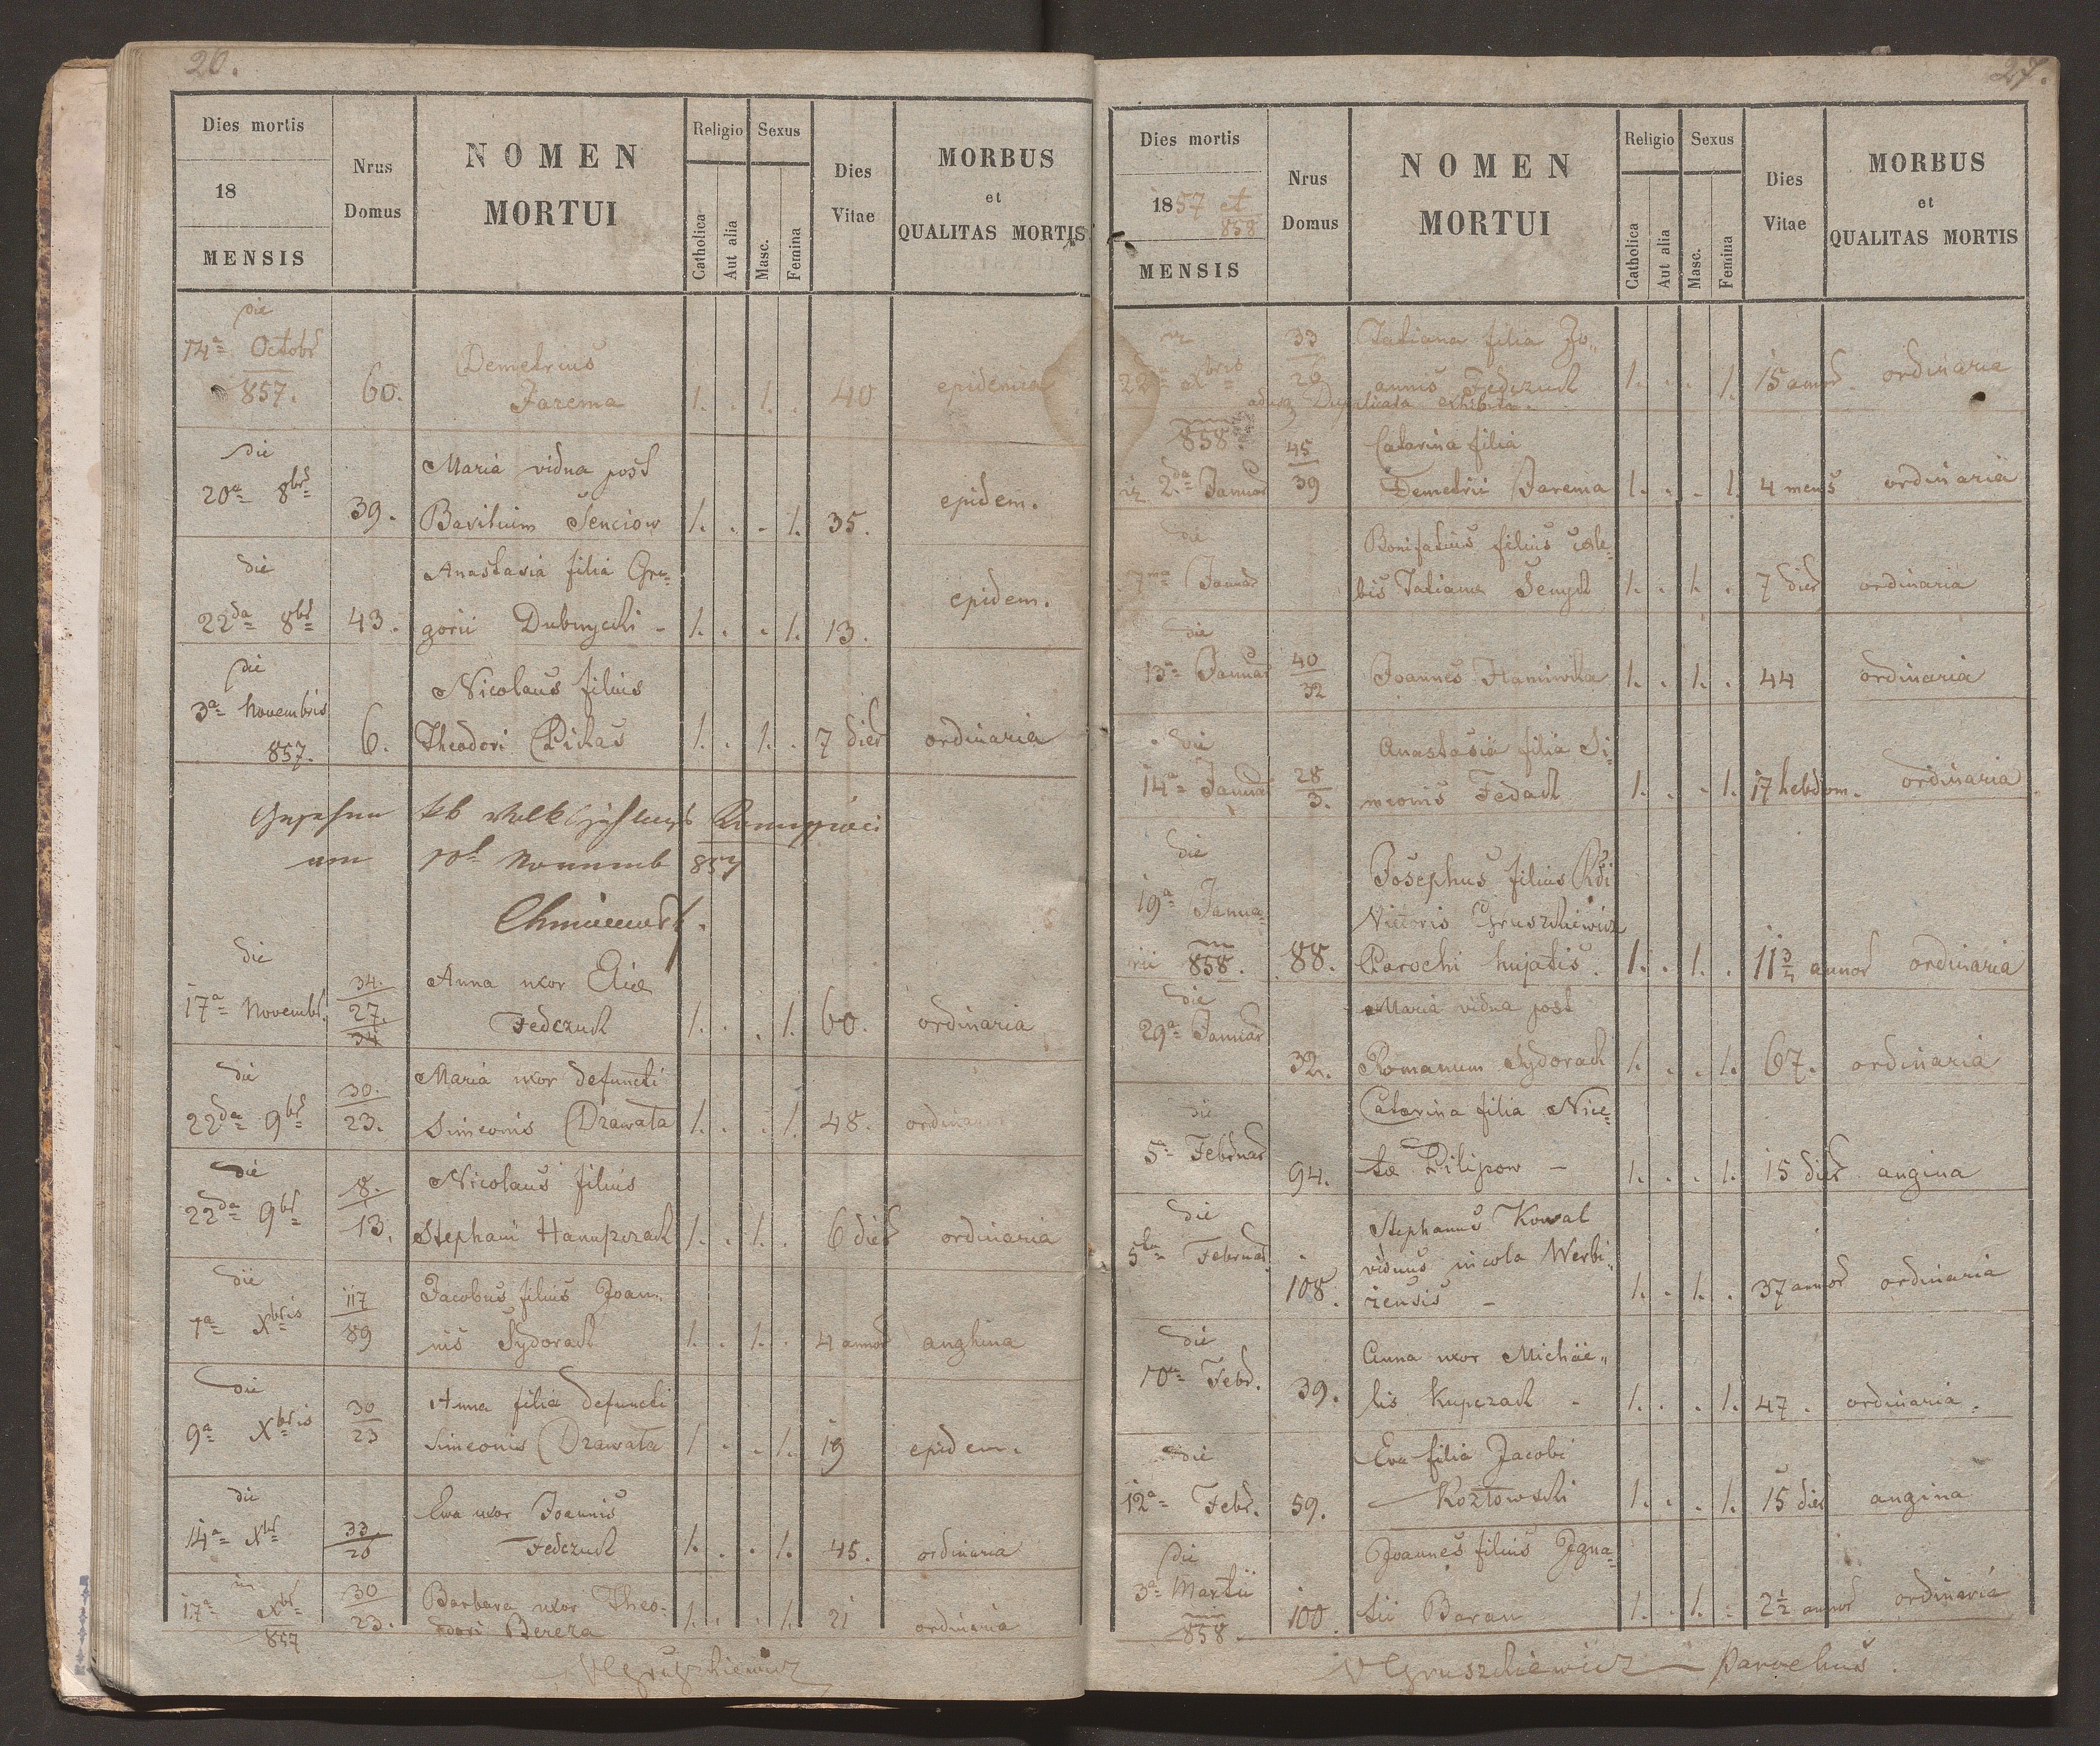 20.
Dies mortis
18
MENSIS
Nrus
Domus
NOMEN
MORTUI
Religio
Catholica
Aut alia
Sexus
Masc.
Femina
Dies
Vitae
MORBUS
et
QUALITAS MORTIS
die
14ª Octobr
857.
60.
Demetrius
Jarema
1. . 1. . 40 epidemica
die
20ª 8br
39.
Maria vidua post
Basilium Senciow
1. . . 1. 35. epidem.
die
22da 8br
43.
Anastasia filia Gre-
gorii Dubnycki -
1. . . 1. 13. epidem.
die
3ª Novembris
857.
6.
Nicolaus filius
Theodori Pikas
1. . 1. . 7 dier ordinaria
am 10t Novemb 857
die
17ª Novembr.
34.
27.
34
Anna uxor Eliæ
Fedczuch
1. . . 1. 60. ordinaria
die
22da 9br
30.
23.
Maria uxor defuncti
Simeonis Drawata
1. . . 1. 48. ordinaria
die
22da 9br
18.
13.
Nicolaus filius
Stephani Hanupczach
1. . 1. . 6 dier ordinaria
die
7ª Xbris
117
89
Jacobus filius Joan-
nis Sydorach
1. . 1. . 4 annor anghina
die
9ª Xbris
30
23
Anna filia defuncti
Simeonis Drawata
1 . . 1. 19 epidem.
die
14ª Xbr
33
26
Eva uxor Joannis
Fedczuch
1. . . 1. 45. ordinaria
17ª Xbr
857
30
23.
Barbara uxor Theo-
dori Bereza
1. . . 1. 21 ordinaria
VGruszkiewicz
27.
Dies mortis
1857 et
858
MENSIS
Nrus
Domus
NOMEN
MORTUI
Religio
Catholica
Aut alia
Sexus
Masc.
Femina
Dies
Vitae
MORBUS
et
QUALITAS MORTIS
22da Xbris
33
26
Tatiana filia Jo-
annis Fedczuch
1. . . 1. 15 annor. ordinaria
adusq Duplicata exhibita.
858.
2da Januar
45
39
Catarina filia
Demetrii Jarema
1. . . 1. 4 mens ordinaria
die
7ma Januar
Bonifatius filius cæle-
bis Tatianæ Senych
1. . 1. . 7 dier ordinaria
die
13ª Januar
40
32
Joannes Hamiwka
1. . 1. . 44 ordinaria
die
14ª Januar
28
3.
Anastasia filia Si-
meonis Fedach
1. . . 1. 17 hebdom. ordinaria
die
19ª Janua-
rii 858.
88.
Josephus filius Rdi
Victoris Gruszkiewicz
Parochi hujatis.
1. . 1. . 11 3/4 annor ordinaria
die
29ª Januar
32.
Maria vidua post
Romanum Sydorach
1. . . 1. 67. ordinaria
die
5ª Februar
94.
Catarina filia Nice-
tæ Pilipow -
1. . . 1. 15 dier angina
die
5ta Februar
108.
Stephanus Kowal
viduus incola Werbi-
zensis -
1. . 1. . 37 annor ordinaria
die
10ª Febr.
39.
Anna uxor Michae-
lis Kupczach -
1. . . 1. 47. ordinaria.
die
12ª Febr.
59.
Eva filia Jacobi
Kozłowski
1. . . 1. 15 dier angina
die
3ª Martii
858.
100.
Joannes filius Igna-
tii Baran
1. . 1. . 2 1/2 annor ordinaria
VGruszkiewicz - Parochus.